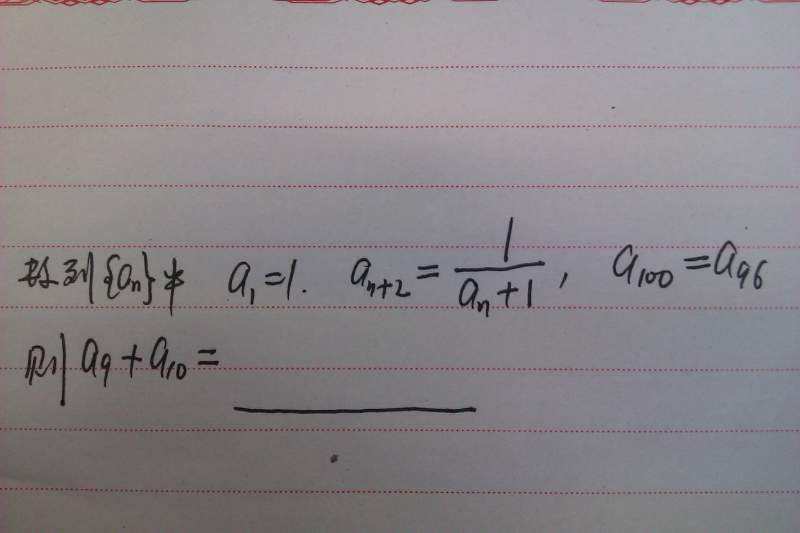 数列{aₙ}中 a₁=1. aₙ₊₂=1/(aₙ+1), a₁₀₀=a₉₆
则 a₉+a₁₀=